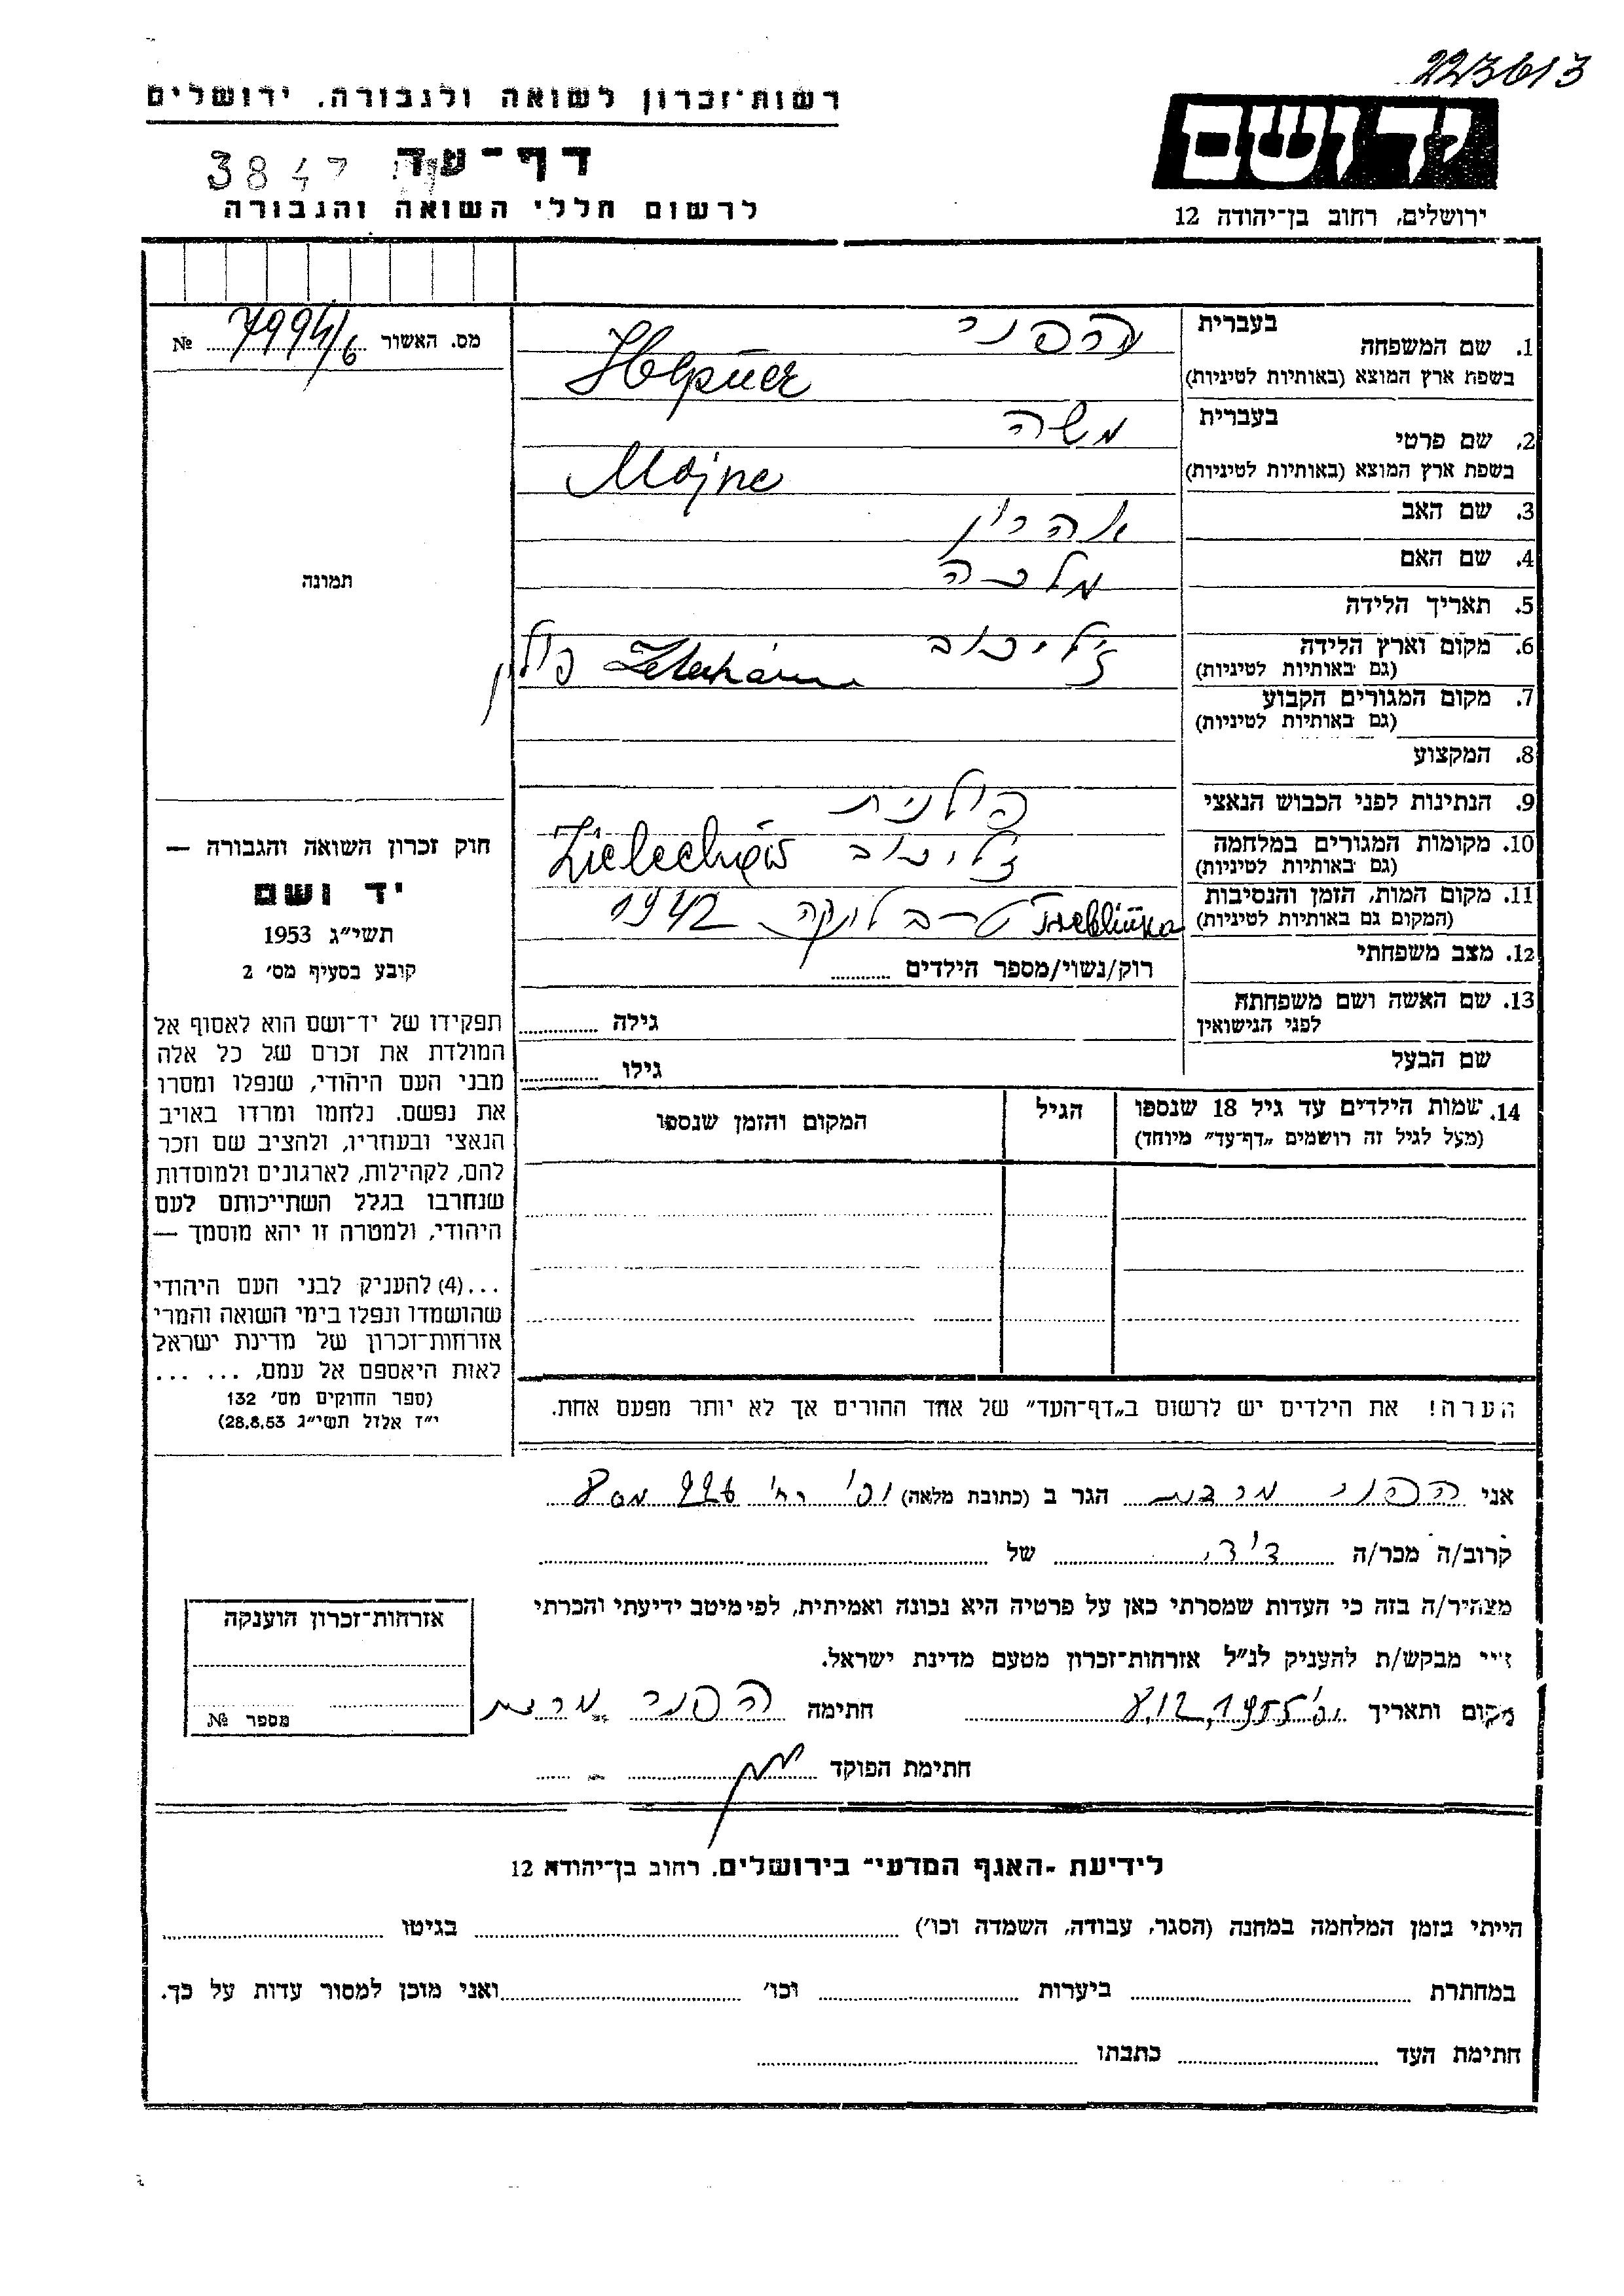 223613
רשות־זכרון לשואה ולגבורה. ירושלים
יד ושם
דף־עד
3847
לרשום חללי השואה והגבורה
ירושלים, רחוב בן־יהודה 12
מס. האשור № 7994/6
1. שם המשפחה
בעברית
בשפת ארץ המוצא (באותיות לטיניות)
2. שם פרטי
בעברית משה
בשפת ארץ המוצא (באותיות לטיניות)
3. שם האב אהרון
4. שם האם מלכה
5. תאריך הלידה
6. מקום וארץ הלידה ז'ליכוב
(גם באותיות לטיניות) פולין
7. מקום המגורים הקבוע
(גם באותיות לטיניות)
8. המקצוע
9. הנתינות לפני הכבוש הנאצי פולנית
10. מקומות המגורים במלחמה ז'ליכוב
(גם באותיות לטיניות)
11. מקום המות, הזמן והנסיבות טרבלינקה 1942
(המקום גם באותיות לטיניות) Treblinka
12. מצב משפחתי רוק/נשוי/מספר הילדים
13. שם האשה ושם משפחתה
לפני הנישואין
גילה
שם הבעל גילו
14. שמות הילדים עד גיל 18 שנספו הגיל המקום והזמן שנספו
(מעל לגיל זה רושמים „דף־עד” מיוחד)
הערה! את הילדים יש לרשום ב„דף־העד” של אחד ההורים אך לא יותר מפעם אחת.
תמונה
חוק זכרון השואה והגבורה —
יד ושם
תשי״ג 1953
קובע בסעיף מס׳ 2
תפקידו של יד־ושם הוא לאסוף אל
המולדת את זכרם של כל אלה
מבני העם היהודי, שנפלו ומסרו
את נפשם. נלחמו ומרדו באויב
הנאצי ובעוזריו, ולהציב שם וזכר
להם, לקהילות, לארגונים ולמוסדות
שנחרבו בגלל השתייכותם לעם
היהודי, ולמטרה זו יהא מוסמך —
...(4) להעניק לבני העם היהודי
שהושמדו ונפלו בימי השואה והמרי
אזרחות־זכרון של מדינת ישראל
לאות היאספם אל עמם, ... ...
(ספר החוקים מס׳ 132
י״ז אלול תשי״ג 28.8.53)
אני הגר ב (כתובת מלאה)
קרוב/ה מכר/ה של
מצהיר/ה בזה כי העדות שמסרתי כאן על פרטיה היא נכונה ואמיתית, לפי מיטב ידיעתי והכרתי
מבקש/ת להעניק לנ״ל אזרחות־זכרון מטעם מדינת ישראל.
מקום ותאריך 8.12.1955 חתימה
חתימת הפוקד
אזרחות־זכרון הוענקה
מספר №
לידיעת ״האגף המדעי״ בירושלים. רחוב בן־יהודא 12
הייתי בזמן המלחמה במחנה (הסגר, עבודה, השמדה וכו׳) בגיטו
במחתרת ביערות וכו׳ ואני מוכן למסור עדות על כך.
חתימת העד כתבתו